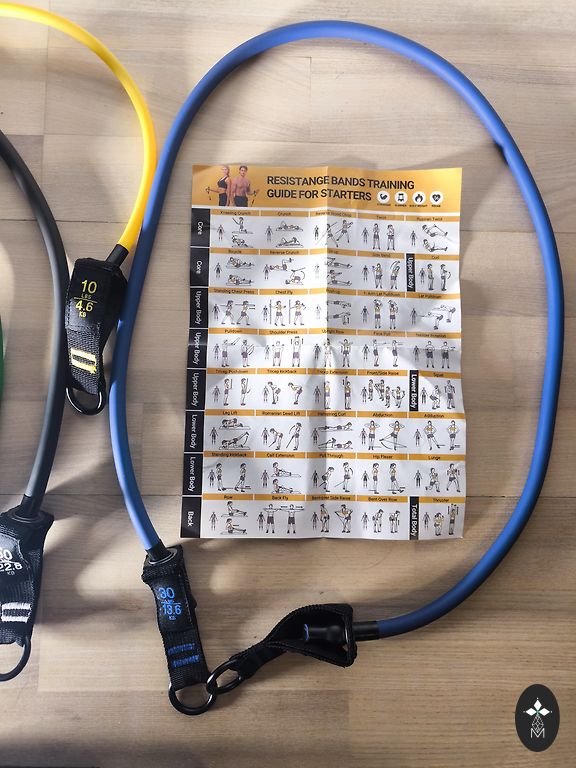 RESISTANGE BANDS TRAINING
GUIDE FOR STARTERS
Kneeling Crunch
Crunch
Reverse Wood Chop
Twist
Russian Twist
Core
Reverse Crunch
Side Bend
Curl
Core
Upper Body
Standing Chest Press
Chest Fly
Lat Pulldown
Upper Body
Pulldown
Shoulder Press
Upright Row
Face Pull
Upper Body
Tricep Pushdown
Tricep Kickback
Tricep Extension
Front/Side Raise
Squat
Upper Body
Lower Body
Leg Lift
Romanian Dead Lift
Hamstring Curl
Abduction
Adduction
Lower Body
Standing Kickback
Calf Extension
Pull Through
Hip Flexer
Lunge
Lower Body
Row
Back Fly
Bent-over Side Raise
Bent Over Row
Thruster
Back
Total Body
10
LBS
4.6
KG
22.8
KG
30
LBS
13.6
KG
M